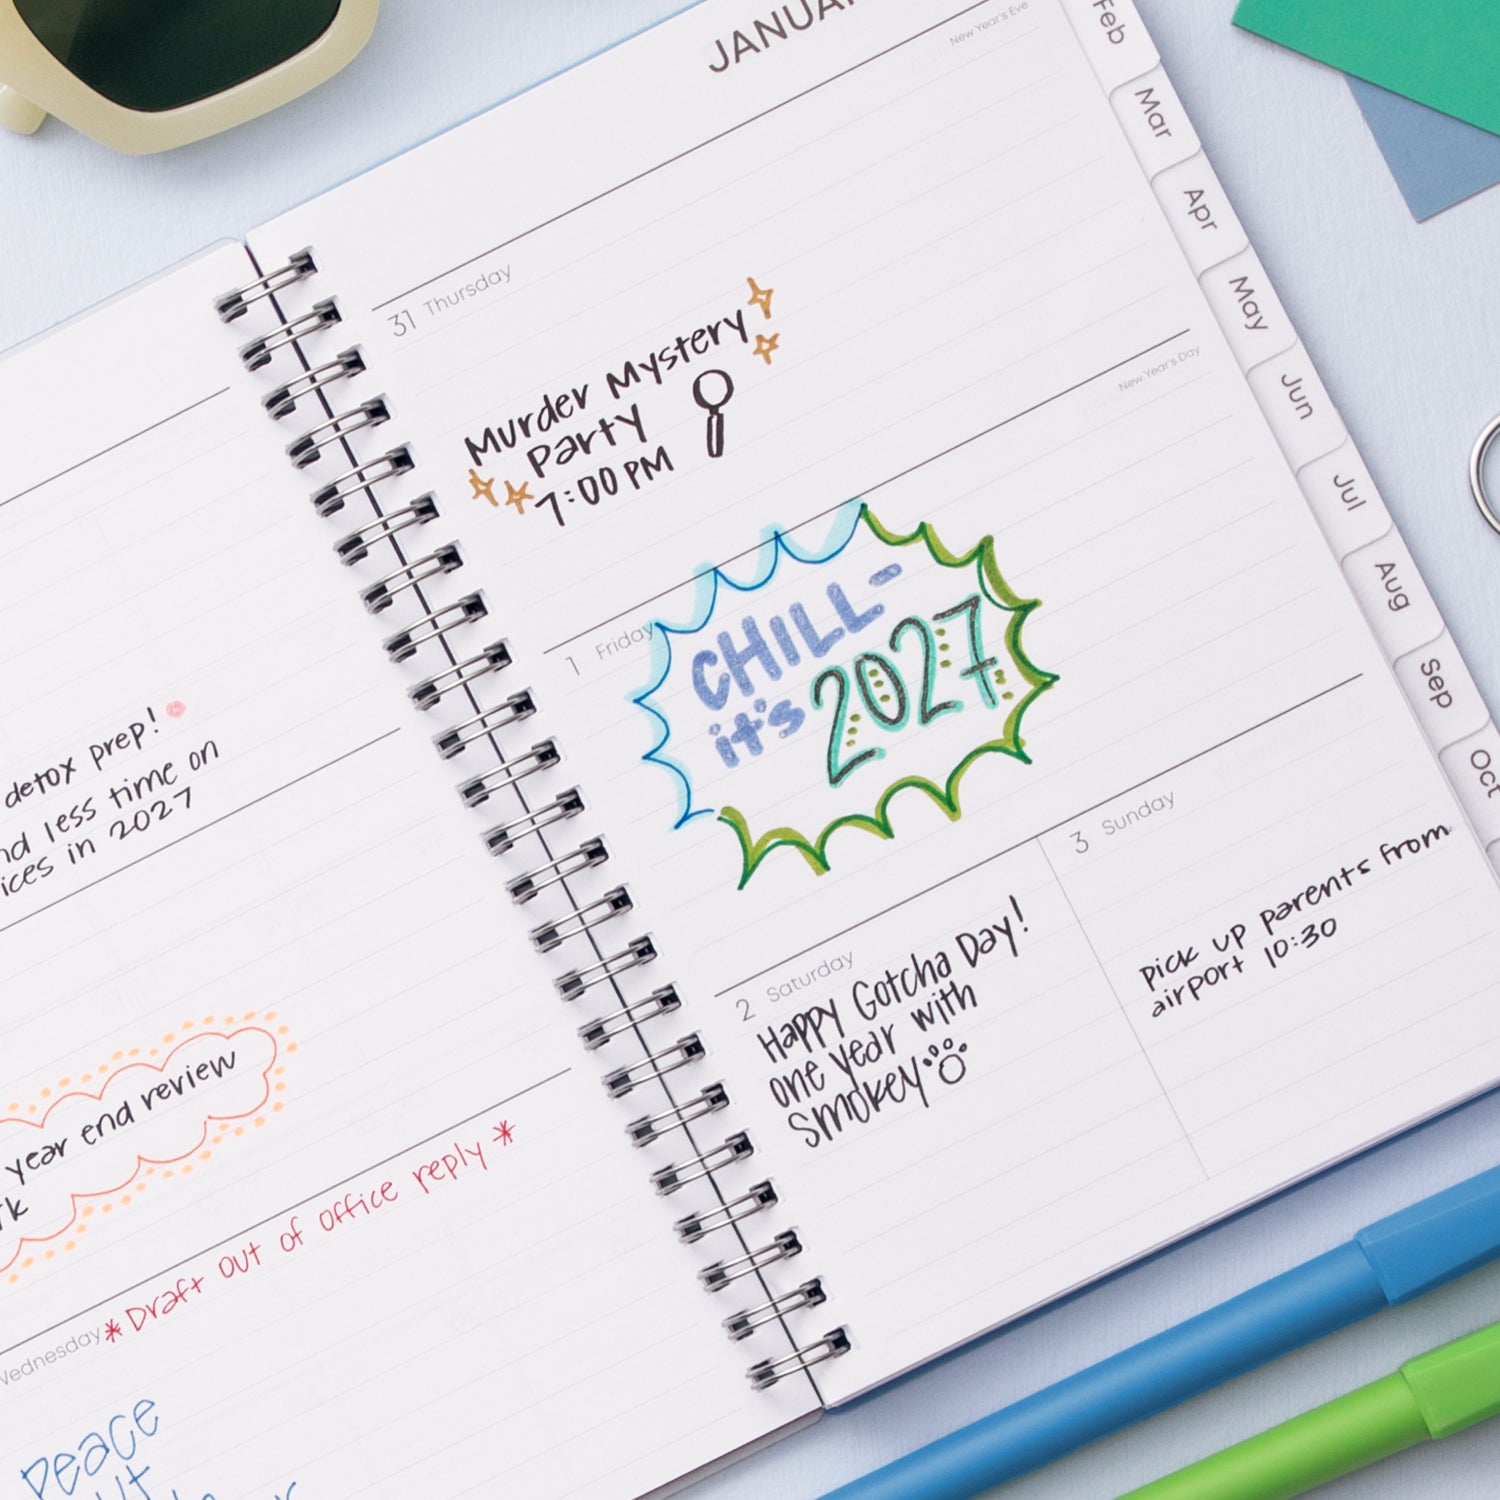 detox prep!
less time on
in 2027
year end review
Wednesday
*Draft out of office reply*
Peace
JANUA
New Year's Eve
31 Thursday
Murder Mystery
Party
7:00 PM
New Year's Day
1 Friday
CHILL-
it's 2027
2 Saturday
Happy Gotcha Day!
one year with
Smokey
3 Sunday
Pick up parents from
airport 10:30
Feb
Mar
Apr
May
Jun
Jul
Aug
Sep
Oct